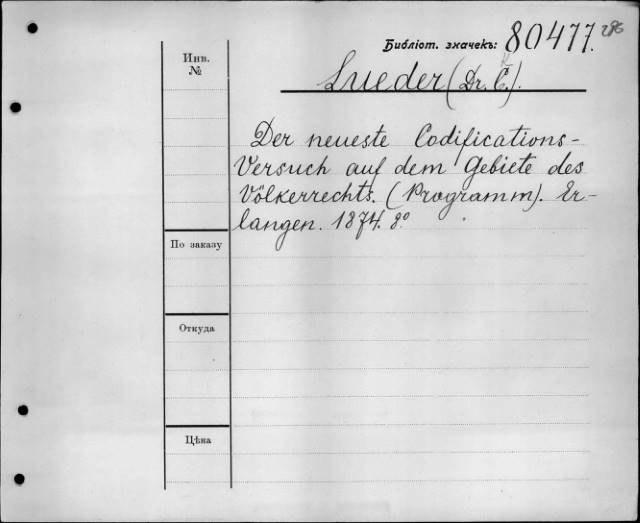 286
Библіот. значекъ: 80477.
Инв.
№
Lueder (Dr. C.).
K
Der neueste Codifications-
Versuch auf dem Gebiete des
Völkerrechts. (Programm). Er-
langen. 1874. 8°
По заказу
Откуда
Цѣна